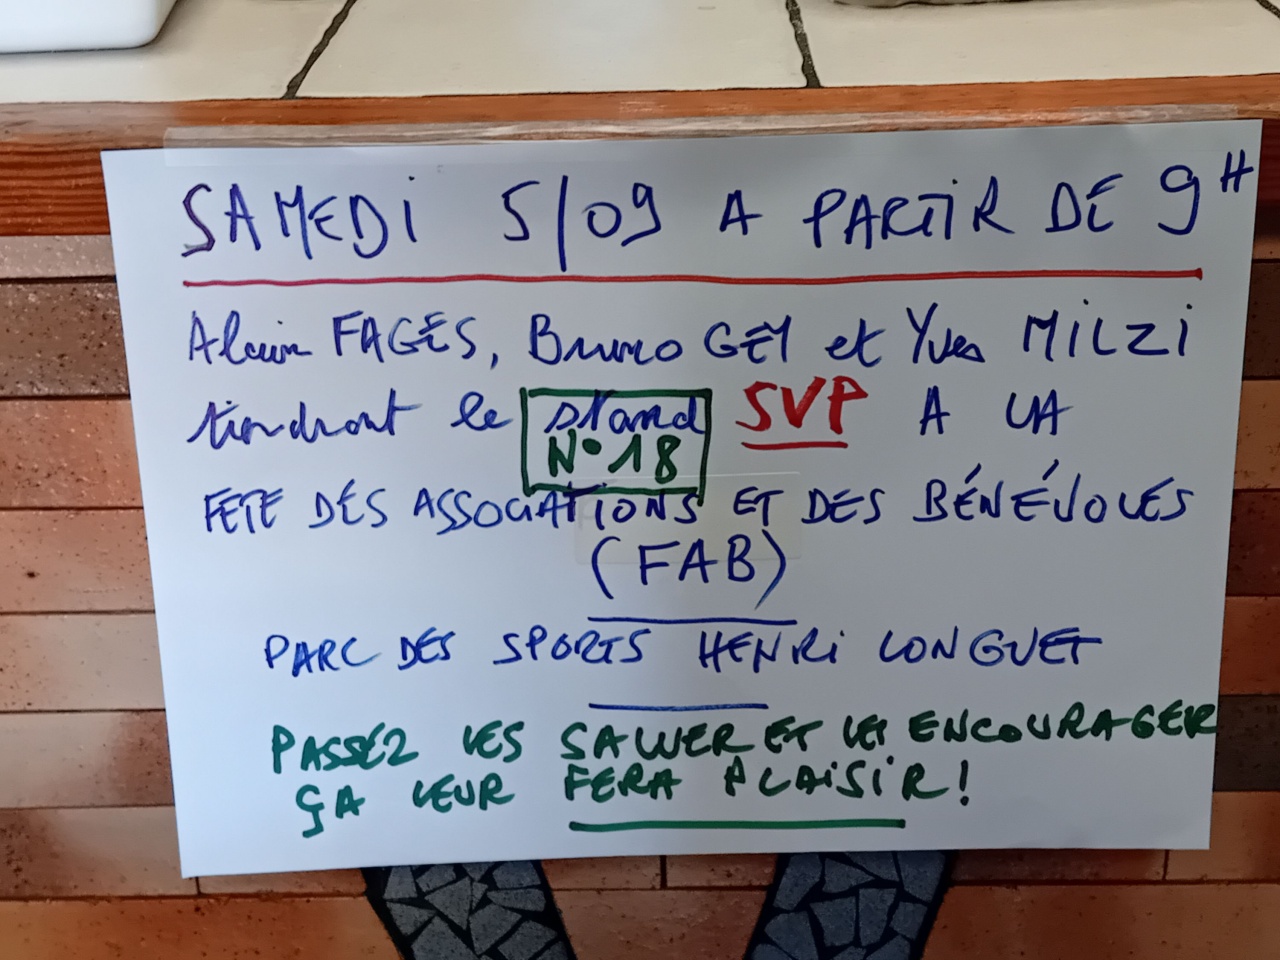 SAMEDI 5/09 A PARTIR DE 9H
Alain FAGES, Bruno GEY et Yves MILZI
tiendront le stand SVP A LA
N°18
FETE DES ASSOCIATIONS ET DES BÉNÉVOLES
(FAB)
PARC DES SPORTS HENRI LONGUET
PASSEZ LES SALUER ET LES ENCOURAGER
ÇA LEUR FERA PLAISIR!